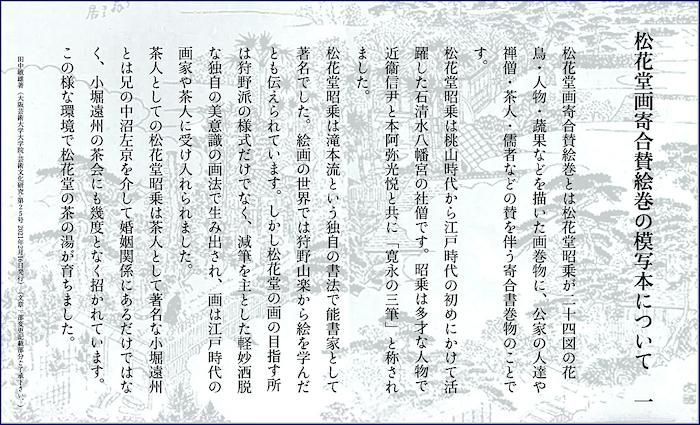 松花堂画寄合賛絵巻の模写本について　一
松花堂画寄合賛絵巻とは松花堂昭乗が二十四図の花
鳥・人物・蔬果などを描いた画巻物に、公家の人達や
禅僧・茶人・儒者などの賛を伴う寄合書巻物のことで
す。
松花堂昭乗は桃山時代から江戸時代の初めにかけて活
躍した石清水八幡宮の社僧です。昭乗は多才な人物で
近衞信尹と本阿弥光悦と共に「寛永の三筆」と称され
ました。
松花堂昭乗は滝本流という独自の書法で能書家として
著名でした。絵画の世界では狩野山楽から絵を学んだ
とも伝えられています。しかし松花堂の画の目指す所
は狩野派の様式だけでなく、減筆を主とした軽妙洒脱
な独自の美意識の画法で生み出され、画は江戸時代の
画家や茶人に受け入れられました。
茶人としての松花堂昭乗は茶人として著名な小堀遠州
とは兄の中沼左京を介して婚姻関係にあるだけではな
く、小堀遠州の茶会にも幾度となく招かれています。
この様な環境で松花堂の茶の湯が育ちました。
田中敏雄著（大阪芸術大学大学院・芸術文化研究・第25号 2021年2月